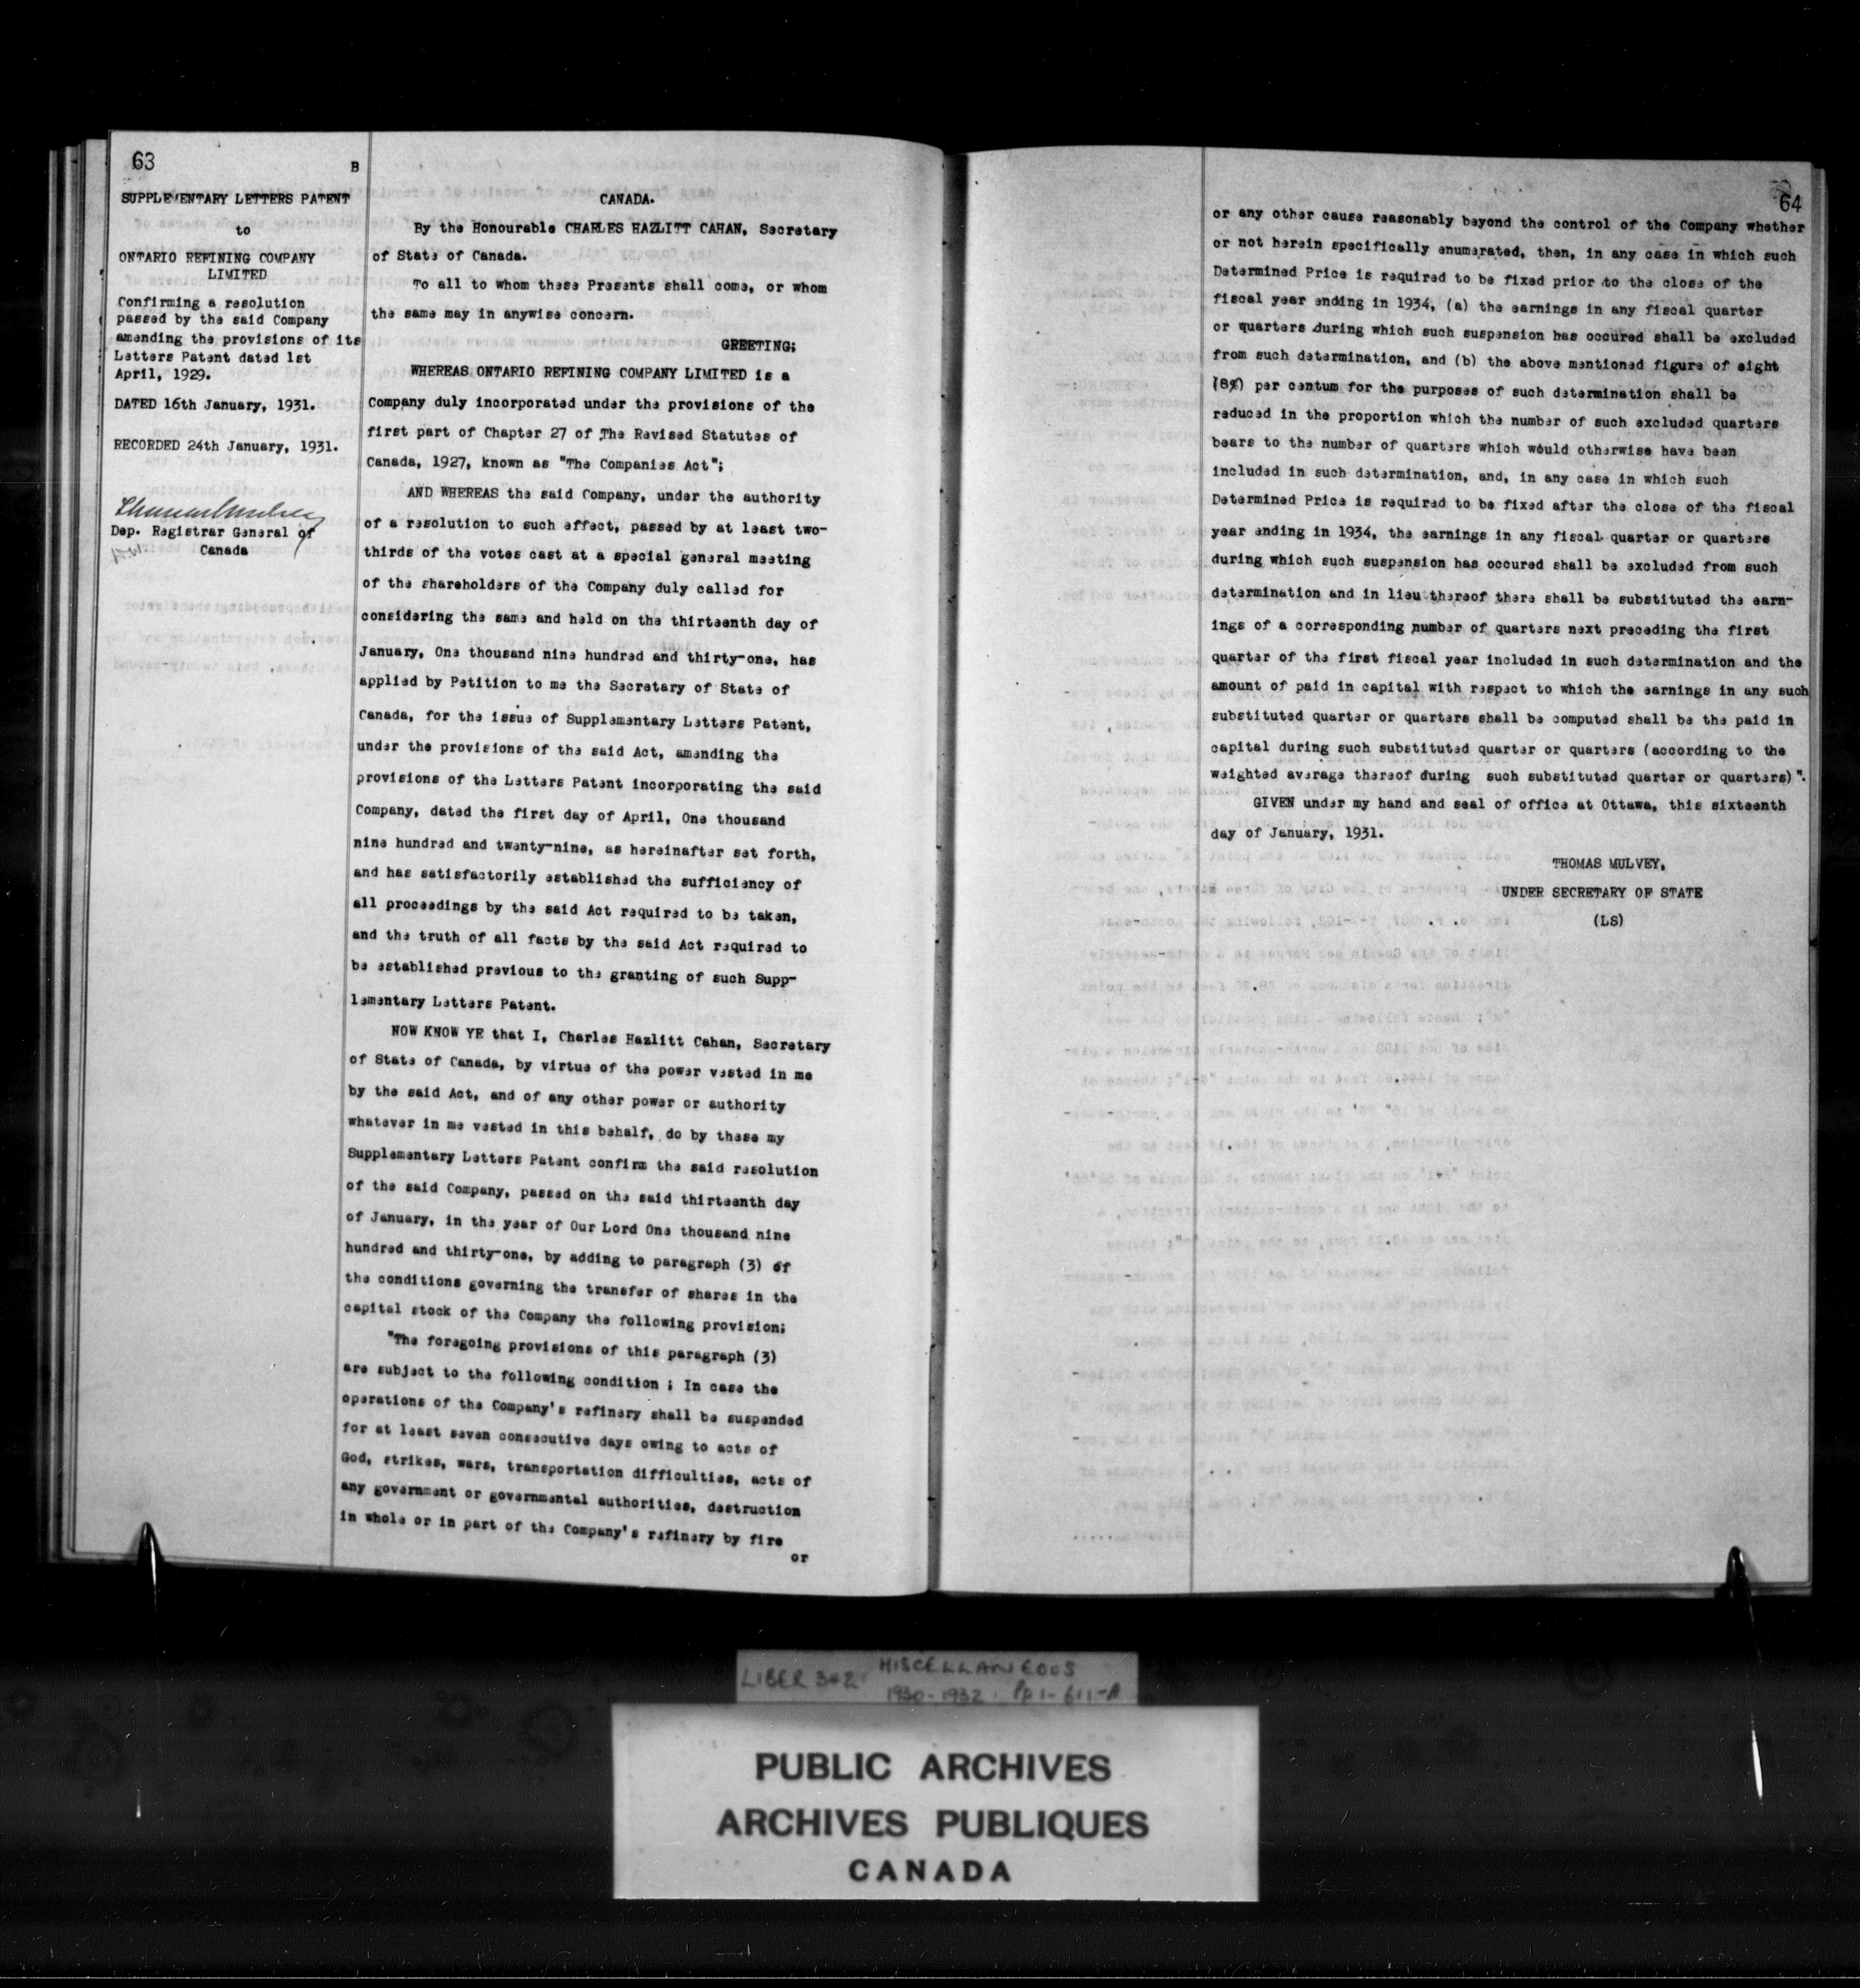 63
B
SUPPLEMENTARY LETTERS PATENT
to
ONTARIO REFINING COMPANY
LIMITED
Confirming a resolution
passed by the said Company
amending the provisions of its
Letters Patent dated 1st
April, 1929.
DATED 16th January, 1931.
RECORDED 24th January, 1931.
Thomas Mulvey
Dep. Registrar General of
Canada
CANADA.
By the Honourable CHARLES HAZLITT CAHAN, Secretary
of State of Canada.
To all to whom these Presents shall come, or whom
the same may in anywise concern.
GREETING;
WHEREAS ONTARIO REFINING COMPANY LIMITED is a
Company duly incorporated under the provisions of the
first part of Chapter 27 of The Revised Statutes of
Canada, 1927, known as "The Companies Act";
AND WHEREAS the said Company, under the authority
of a resolution to such effect, passed by at least two-
thirds of the votes cast at a special general meeting
of the shareholders of the Company duly called for
considering the same and held on the thirteenth day of
January, One thousand nine hundred and thirty-one, has
applied by Petition to me the Secretary of State of
Canada, for the issue of Supplementary Letters Patent,
under the provisions of the said Act, amending the
provisions of the Letters Patent incorporating the said
Company, dated the first day of April, One thousand
nine hundred and twenty-nine, as hereinafter set forth,
and has satisfactorily established the sufficiency of
all proceedings by the said Act required to be taken,
and the truth of all facts by the said Act required to
be established previous to the granting of such Supp-
lementary Letters Patent.
NOW KNOW YE that I, Charles Hazlitt Cahan, Secretary
of State of Canada, by virtue of the power vested in me
by the said Act, and of any other power or authority
whatever in me vested in this behalf, do by these my
Supplementary Letters Patent confirm the said resolution
of the said Company, passed on the said thirteenth day
of January, in the year of Our Lord One thousand nine
hundred and thirty-one, by adding to paragraph (3) of
the conditions governing the transfer of shares in the
capital stock of the Company the following provision;
"The foregoing provisions of this paragraph (3)
are subject to the following condition ; In case the
operations of the Company's refinery shall be suspended
for at least seven consecutive days owing to acts of
God, strikes, wars, transportation difficulties, acts of
any government or governmental authorities, destruction
in whole or in part of the Company's refinery by fire
or
64
or any other cause reasonably beyond the control of the Company whether
or not herein specifically enumerated, then, in any case in which such
Determined Price is required to be fixed prior to the close of the
fiscal year ending in 1934, (a) the earnings in any fiscal quarter
or quarters during which such suspension has occured shall be excluded
from such determination, and (b) the above mentioned figure of eight
(8%) per centum for the purposes of such determination shall be
reduced in the proportion which the number of such excluded quarters
bears to the number of quarters which would otherwise have been
included in such determination, and, in any case in which such
Determined Price is required to be fixed after the close of the fiscal
year ending in 1934, the earnings in any fiscal quarter or quarters
during which such suspension has occured shall be excluded from such
determination and in lieu thereof there shall be substituted the earn-
ings of a corresponding number of quarters next preceding the first
quarter of the first fiscal year included in such determination and the
amount of paid in capital with respect to which the earnings in any such
substituted quarter or quarters shall be computed shall be the paid in
capital during such substituted quarter or quarters (according to the
weighted average thereof during such substituted quarter or quarters)".
GIVEN under my hand and seal of office at Ottawa, this sixteenth
day of January, 1931.
THOMAS MULVEY,
UNDER SECRETARY OF STATE
(LS)
LIBER 342 MISCELLANEOUS
1930-1932. Pp 1-611-A
PUBLIC ARCHIVES
ARCHIVES PUBLIQUES
CANADA